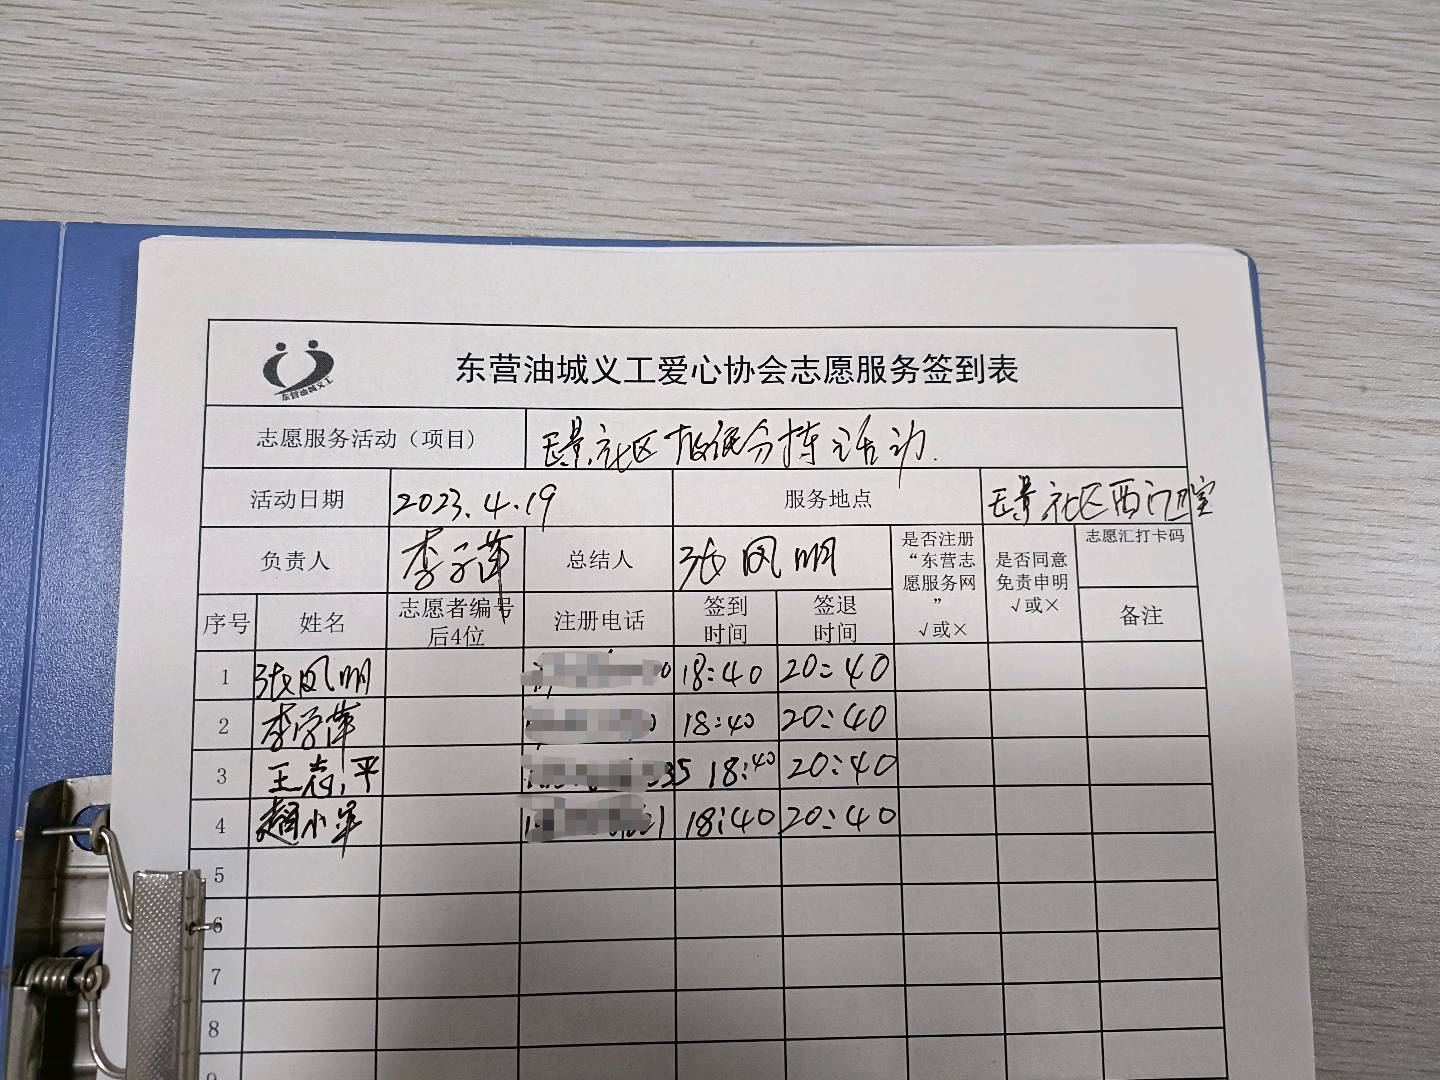 东营油城义工
东营油城义工爱心协会志愿服务签到表
志愿服务活动（项目） 社区 分拣活动.
活动日期 2023.4.19 服务地点 社区西门
负责人 李子萍 总结人 张凤明 是否注册“东营志愿服务网” √或× 是否同意免责申明 √或× 志愿汇打卡码
序号 姓名 志愿者编号后4位 注册电话 签到时间 签退时间 备注
1 张凤明 18:40 20:40
2 李子萍 18:40 20:40
3 王志平 18:40 20:40
4 赵小军 18:40 20:40
5
6
7
8